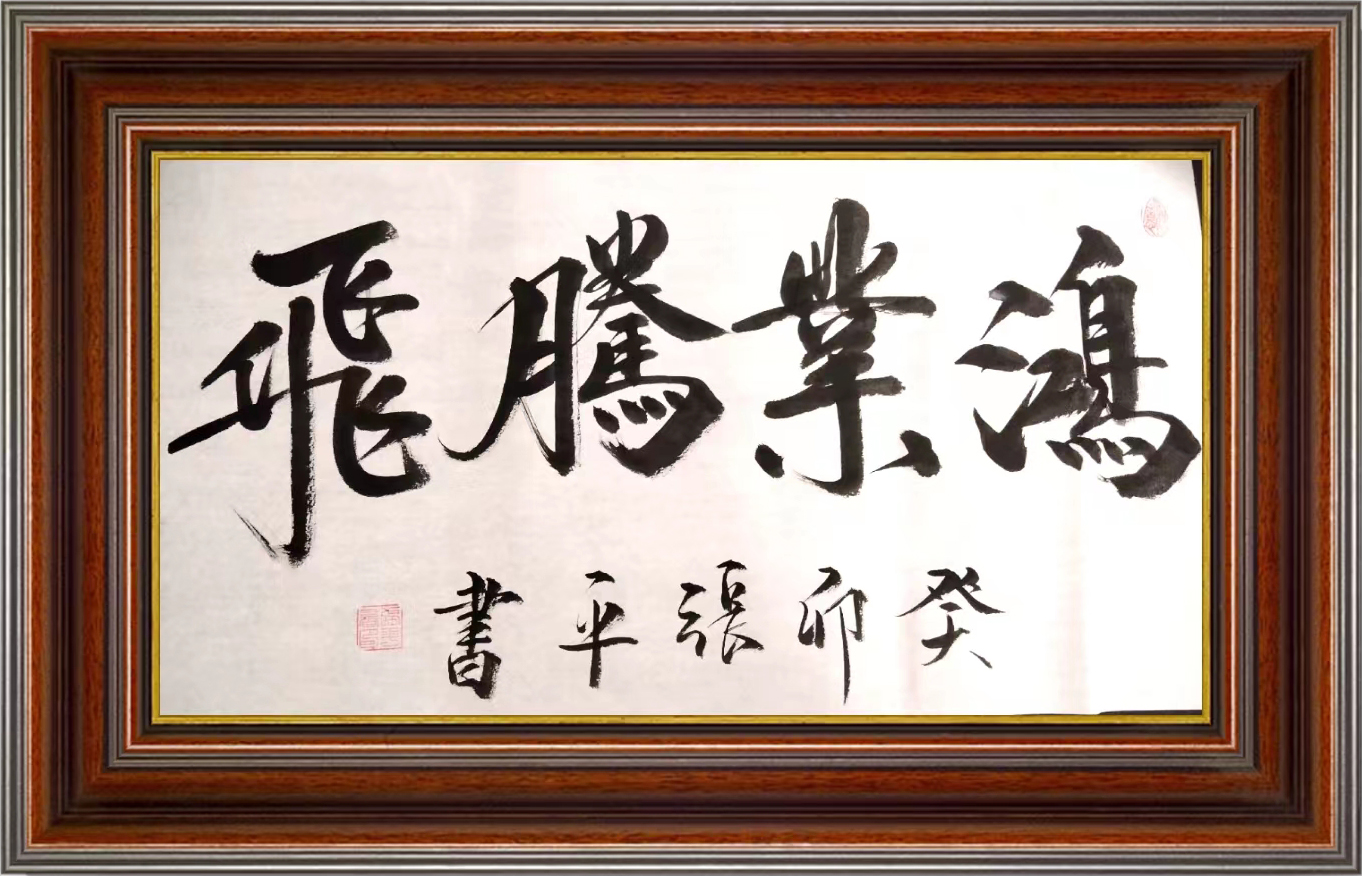 鴻業騰飛
癸卯張平書